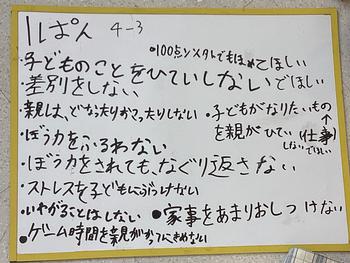 11ぱん 4-3
・100点ソメタトでもほめてほしい
・子どものことをひていしないでほしい
・差別をしない
・親は、どなったりかなったりしない
・子どもがなりたいもの(仕事)を親がひていしないでほしい
・ぼう力をふるわない
・ぼう力をされても、なぐり返さない
・ストレスを子どもにぶつけない
・いやがることはしない
●家事をあまりおしつけない
●ゲーム時間を親がかってにきめない